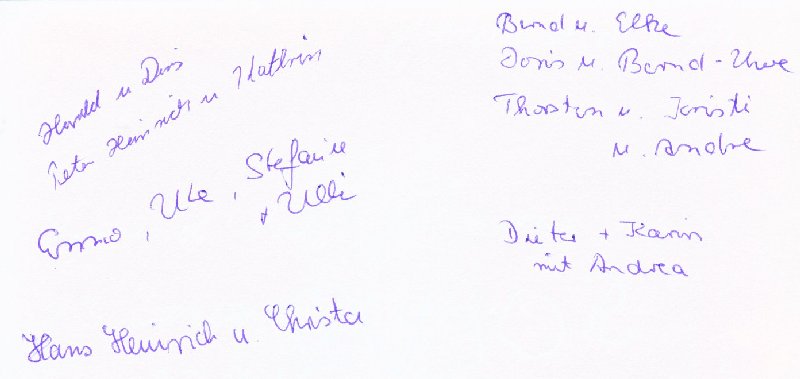 Harald u Doris
Peter Heinrich u Kathrin
Emmo, Ute, Stefanie
+ Ulli
Hans Heinrich u. Christa
Bernd u. Elke
Doris u. Bernd-Uwe
Thorsten u. Kristi
u. Andre
Dieter + Karin
mit Andrea